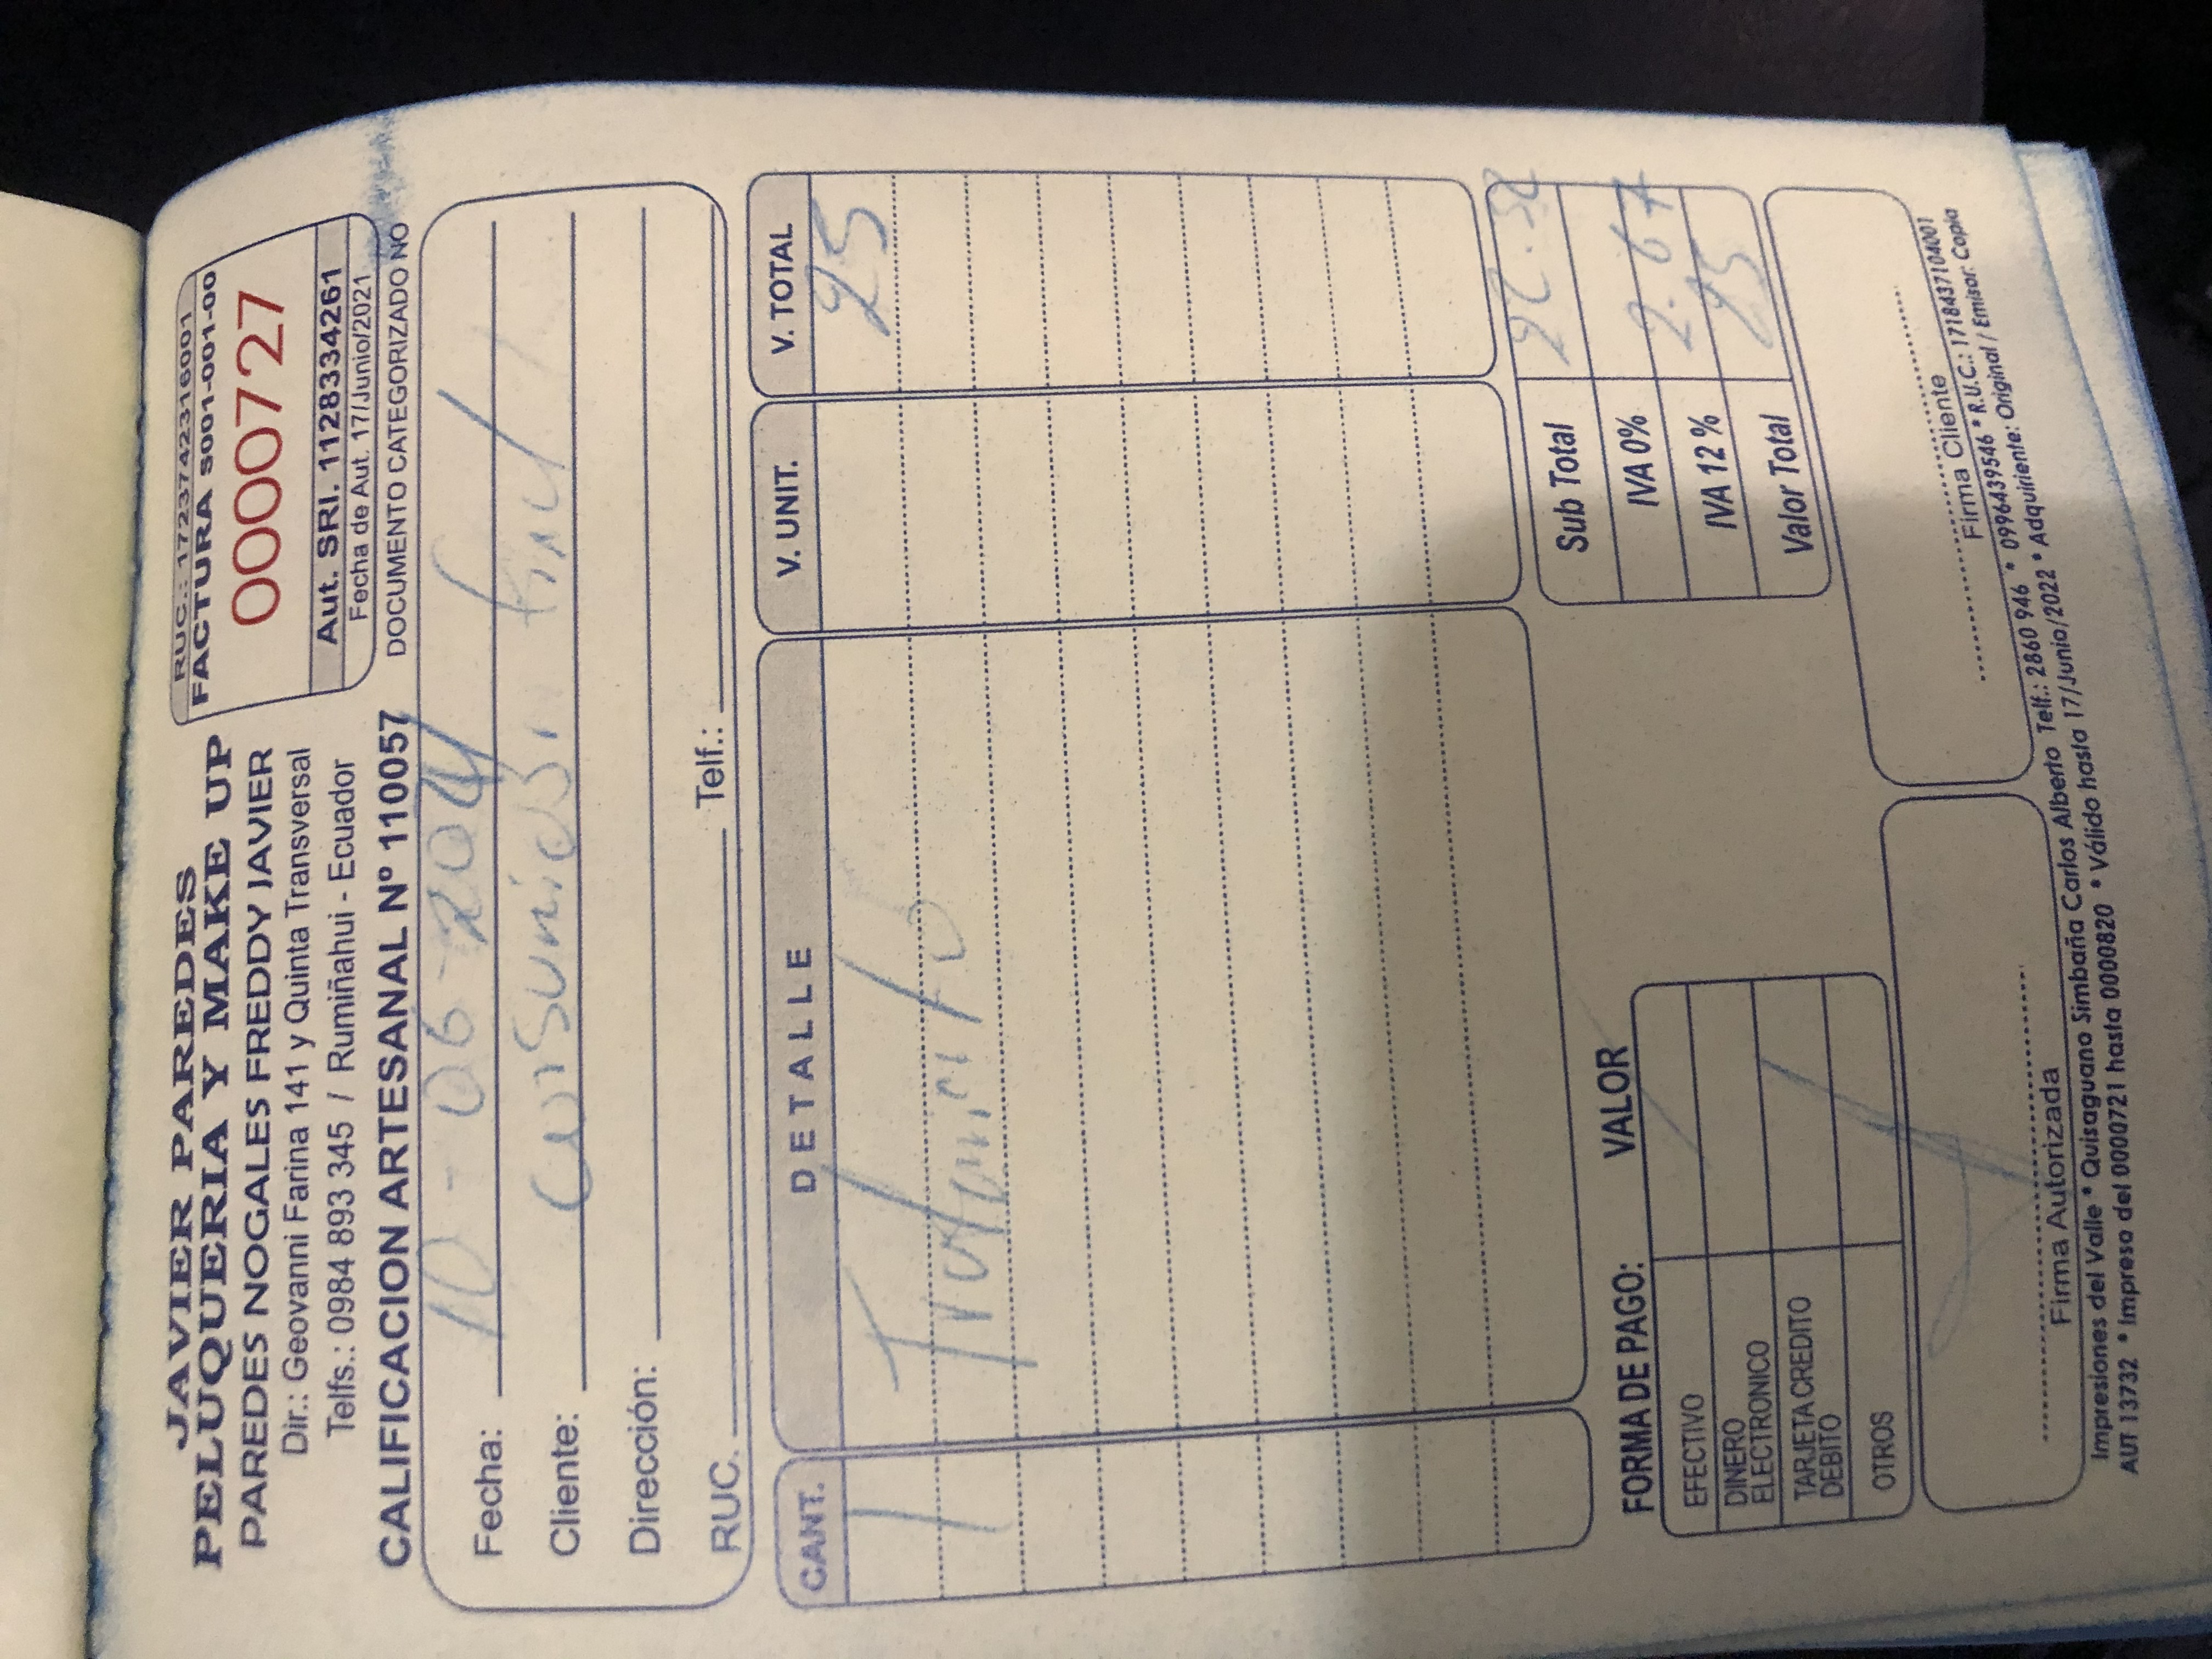 JAVIER PAREDES
PELUQUERIA Y MAKE UP
PAREDES NOGALES FREDDY JAVIER
Dir.: Geovanni Farina 141 y Quinta Transversal
Telfs.: 0984 893 345 / Rumiñahui - Ecuador
CALIFICACION ARTESANAL Nº 110057
RUC.: 1723742316001
FACTURA S001-001-00
0000727
Aut. SRI. 1128334261
Fecha de Aut. 17/Junio/2021
DOCUMENTO CATEGORIZADO NO
Fecha: 10 - 06 -
Cliente: consumidor final
Dirección:
RUC. Telf.:
CANT. DETALLE V. UNIT. V. TOTAL
1 Tratamiento 25
Sub Total
IVA 0%
IVA 12 % 2.67
Valor Total 25
FORMA DE PAGO: VALOR
EFECTIVO
DINERO
ELECTRONICO
TARJETA CREDITO
DEBITO
OTROS
Firma Autorizada
Firma Cliente
Impresiones del Valle * Quisaguano Simbaña Carlos Alberto Telf.: 2860 946 * 0996439546 * R.U.C.: 1718437104001
AUT 13732 * Impreso del 0000721 hasta 0000820 * Válido hasta 17/Junio/2022 * Adquiriente: Original / Emisor: Copia